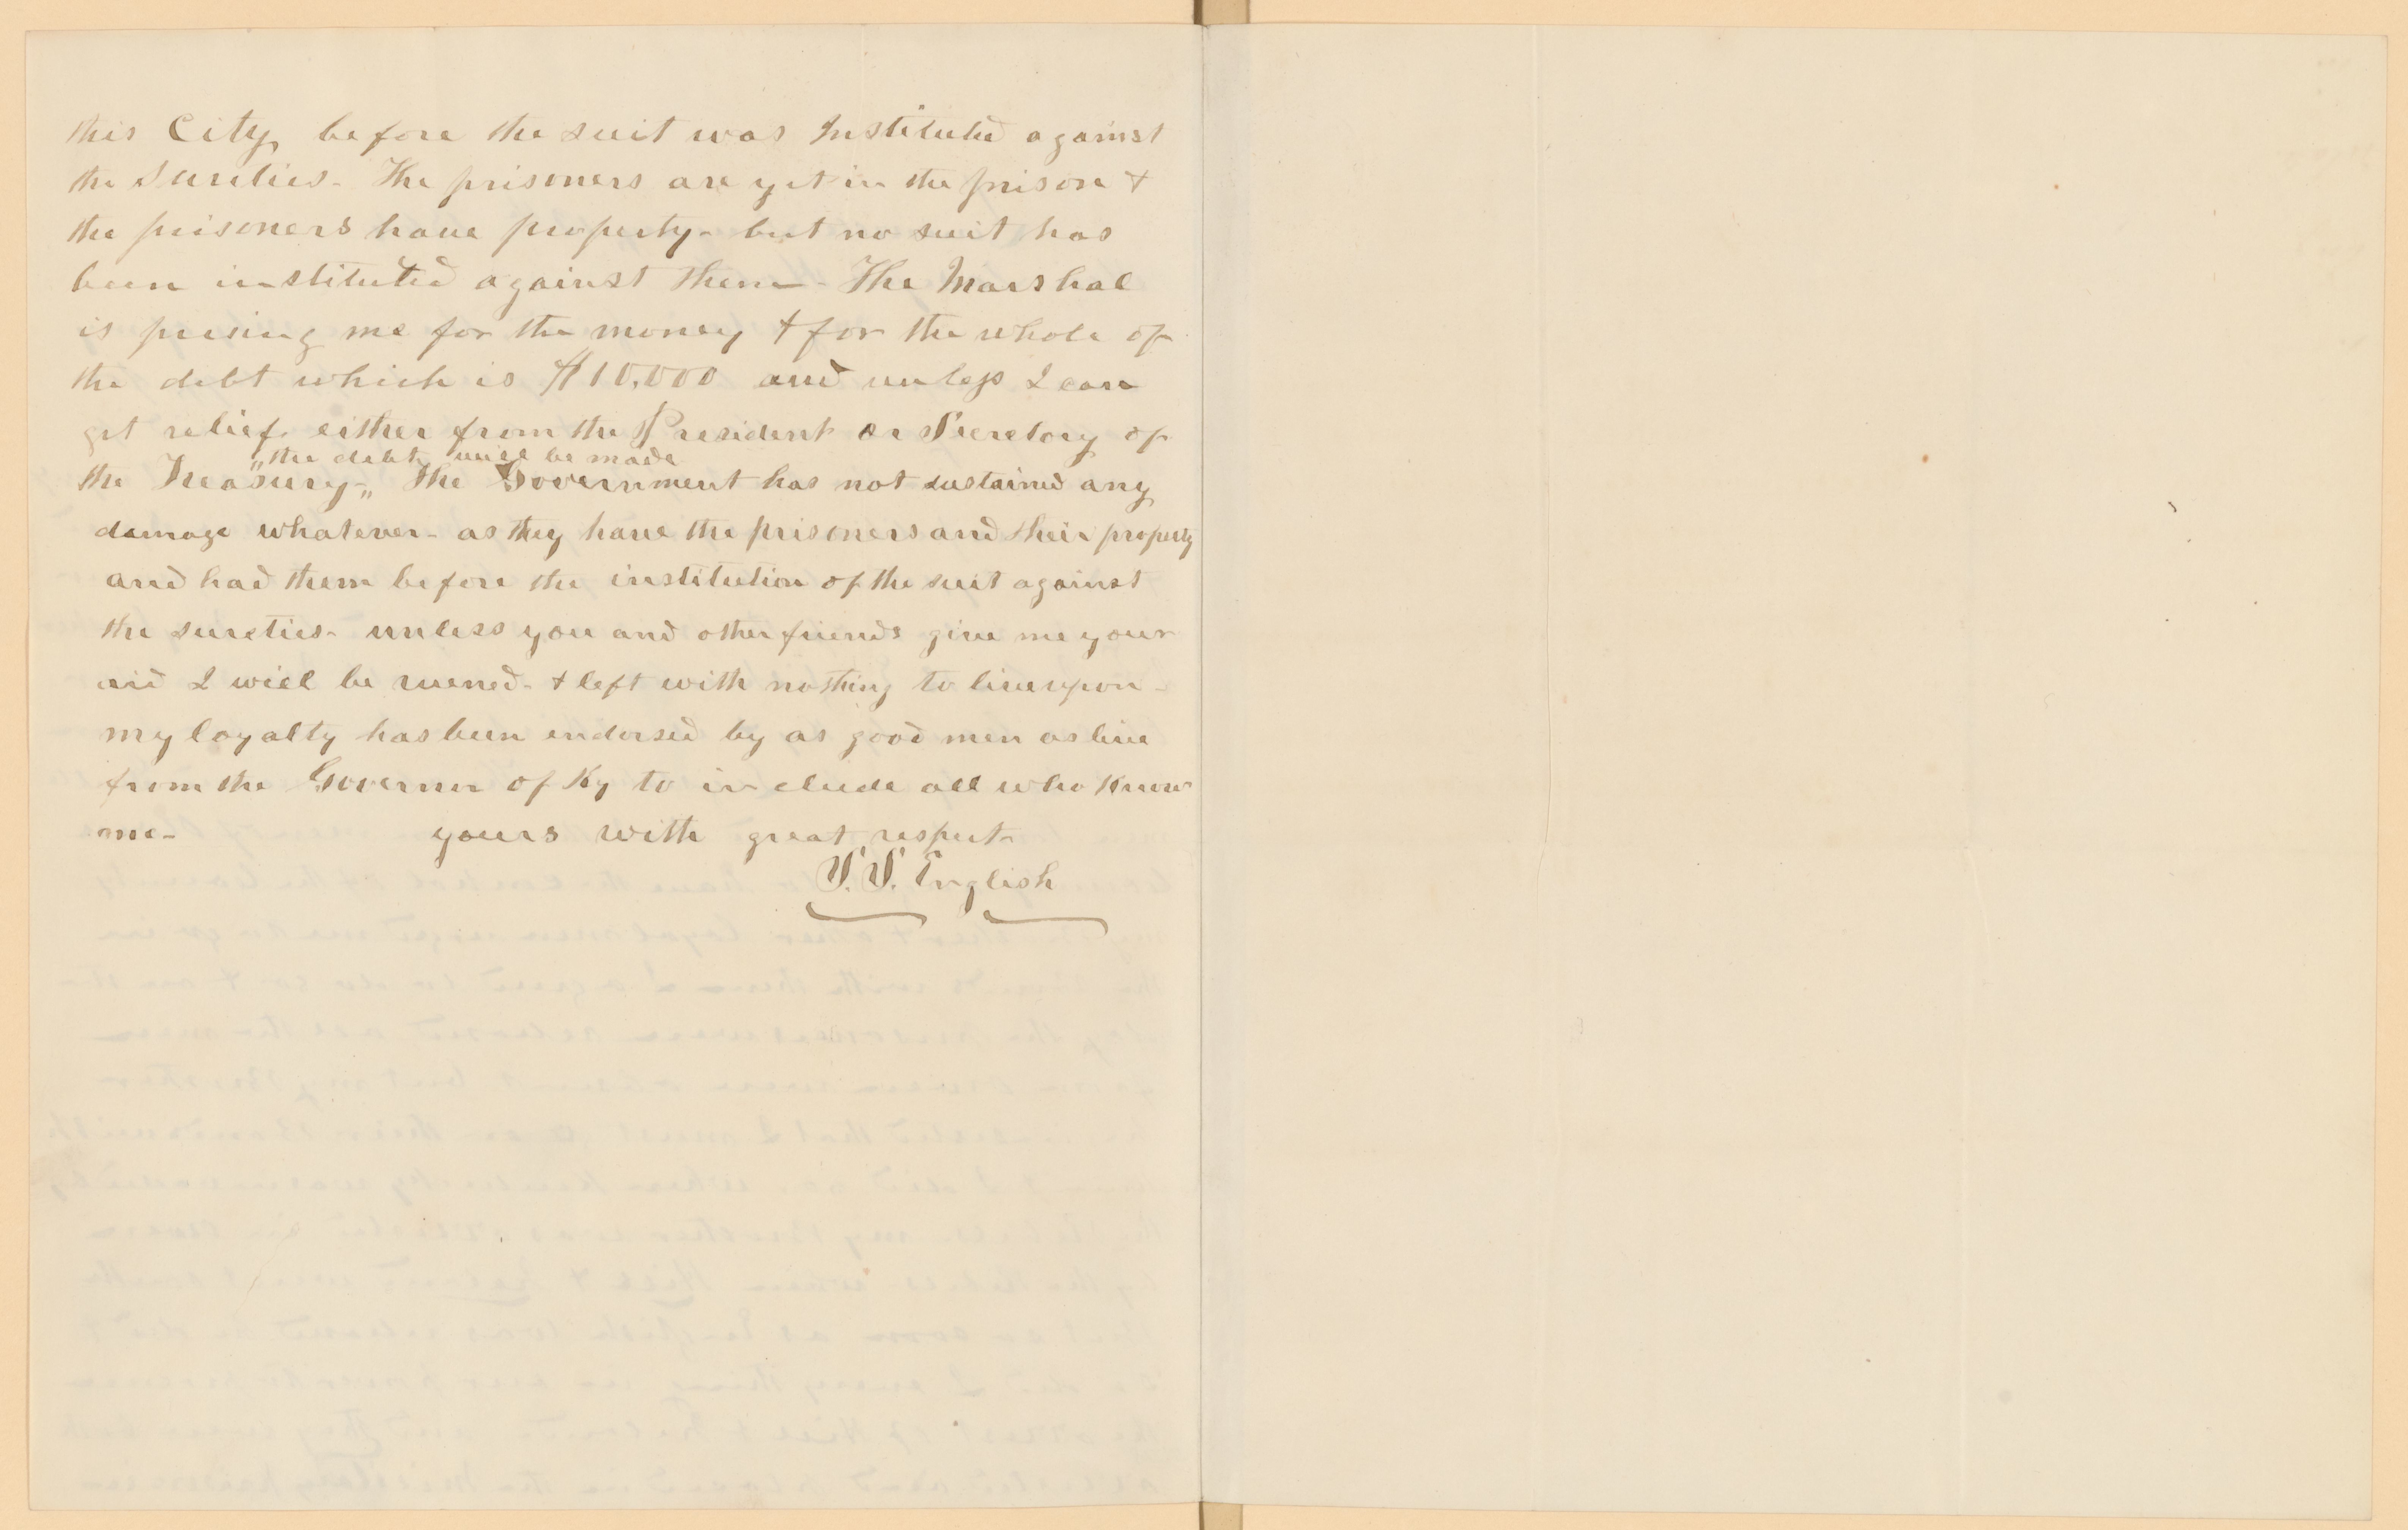 this City, before the suit was Instituted against
the Sureties - The prisoners are yet in the prison &
the prisoners have property - but no suit has
been instituted against them - The Marshal
is presing me for the money & for the whole of
the debt which is $10,000 and unless I can
get relief either from the President or Secretary of
"the debt will be made
the Treasury - " The Government has not sustained any
damage whatever - as they have the prisoners and their property
and had them before the institution of the suit against
the sureties - unless you and other friends give me your
aid I will be ruened - & left with nothing to live upon -
my loyalty has been endorsed by as good men as live
from the Governor of Ky to include all who know
me - yours with great respect
English